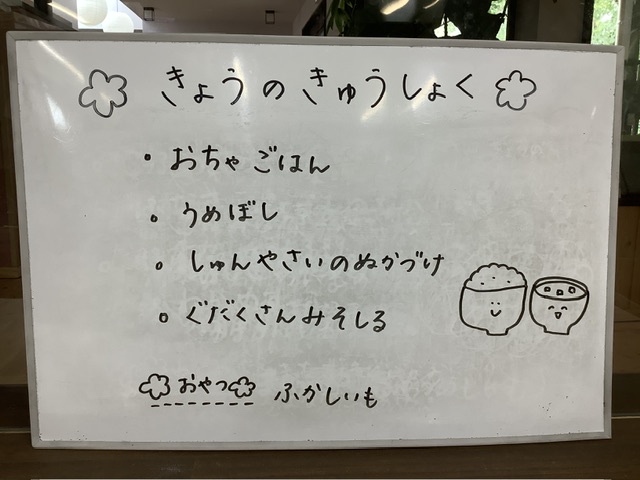 きょうのきゅうしょく
・おちゃごはん
・うめぼし
・しゅんやさいのぬかづけ
・ぐだくさんみそしる
おやつ ふかしいも